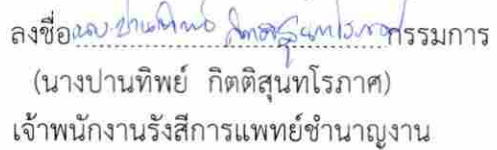 ลงชื่อ นางปานทิพย์ กิตติสุนทโรภาศ กรรมการ
(นางปานทิพย์ กิตติสุนทโรภาศ)
เจ้าพนักงานรังสีการแพทย์ชำนาญงาน